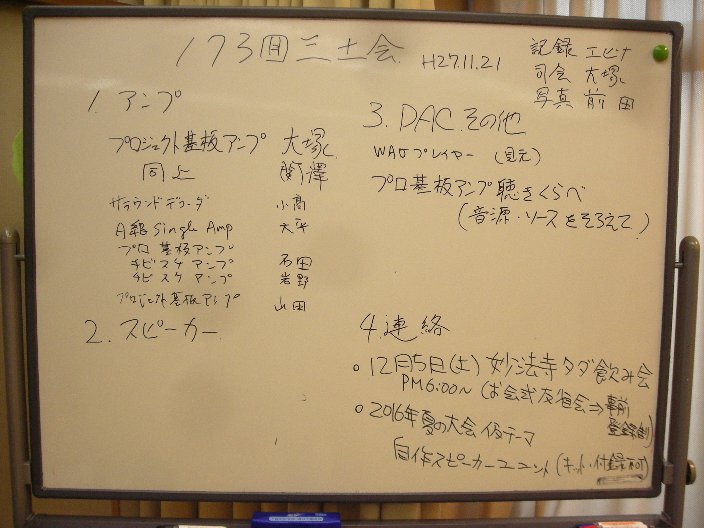 173回三土会 H27.11.21
記録 エビナ
司会 大塚
写真 前田
1. アンプ
プロジェクト基板アンプ 大塚
同上 関澤
サラウンドデコーダ 小高
A級 Single Amp 大平
プロ基板アンプ
チビスケアンプ 石田
チビスケアンプ 岩野
プロジェクト基板アンプ 山田
2. スピーカー
3. DAC その他
WAVプレイヤー
プロ基板アンプ聴きくらべ
(音源・ソースをそろえて)
4. 連絡
○ 12月5日(土) 妙法寺タダ飲み会
PM6:00〜 (お会式反省会⇒事前
登録制)
○ 2016年夏の大会 仮テーマ
自作スピーカーユニット (キット・付録不可)